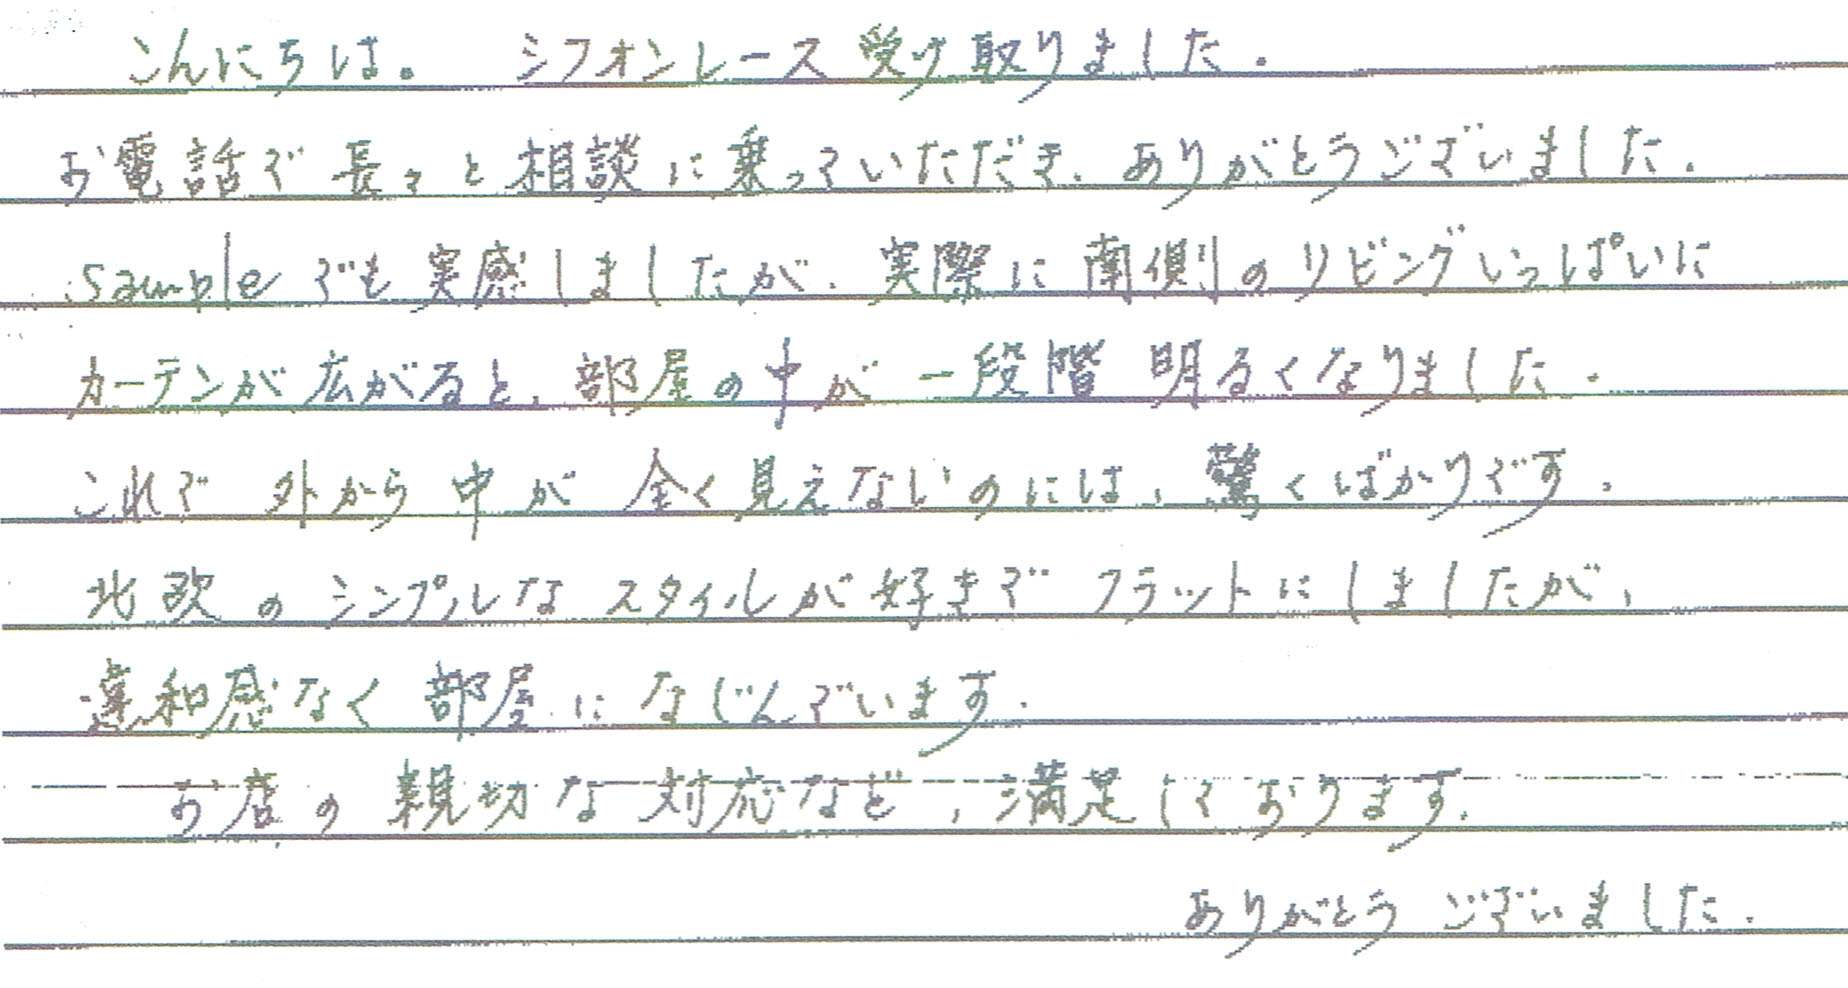 こんにちは。 シフォンレース 受け取りました.
お電話で 長々と 相談に乗っていただき、ありがとうございました.
sampleでも 実感しましたが、実際に 南側のリビングいっぱいに
カーテンが広がると、部屋の中が 一段階 明るくなりました.
これで 外から 中が 全く見えないのには、驚くばかりです.
北欧の シンプルな スタイルが好きで フラットにしましたが、
違和感なく 部屋に なじんでいます.
お店の 親切な対応など、満足しております.
ありがとう ございました.